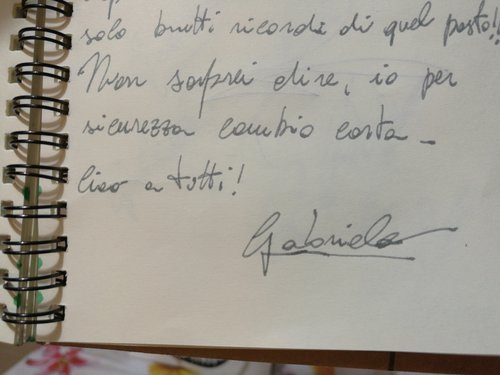 solo brutti ricordi di quel posto!!
Non saprei dire, io per
sicurezza cambio costa -
Ciao a tutti!
Gabriele